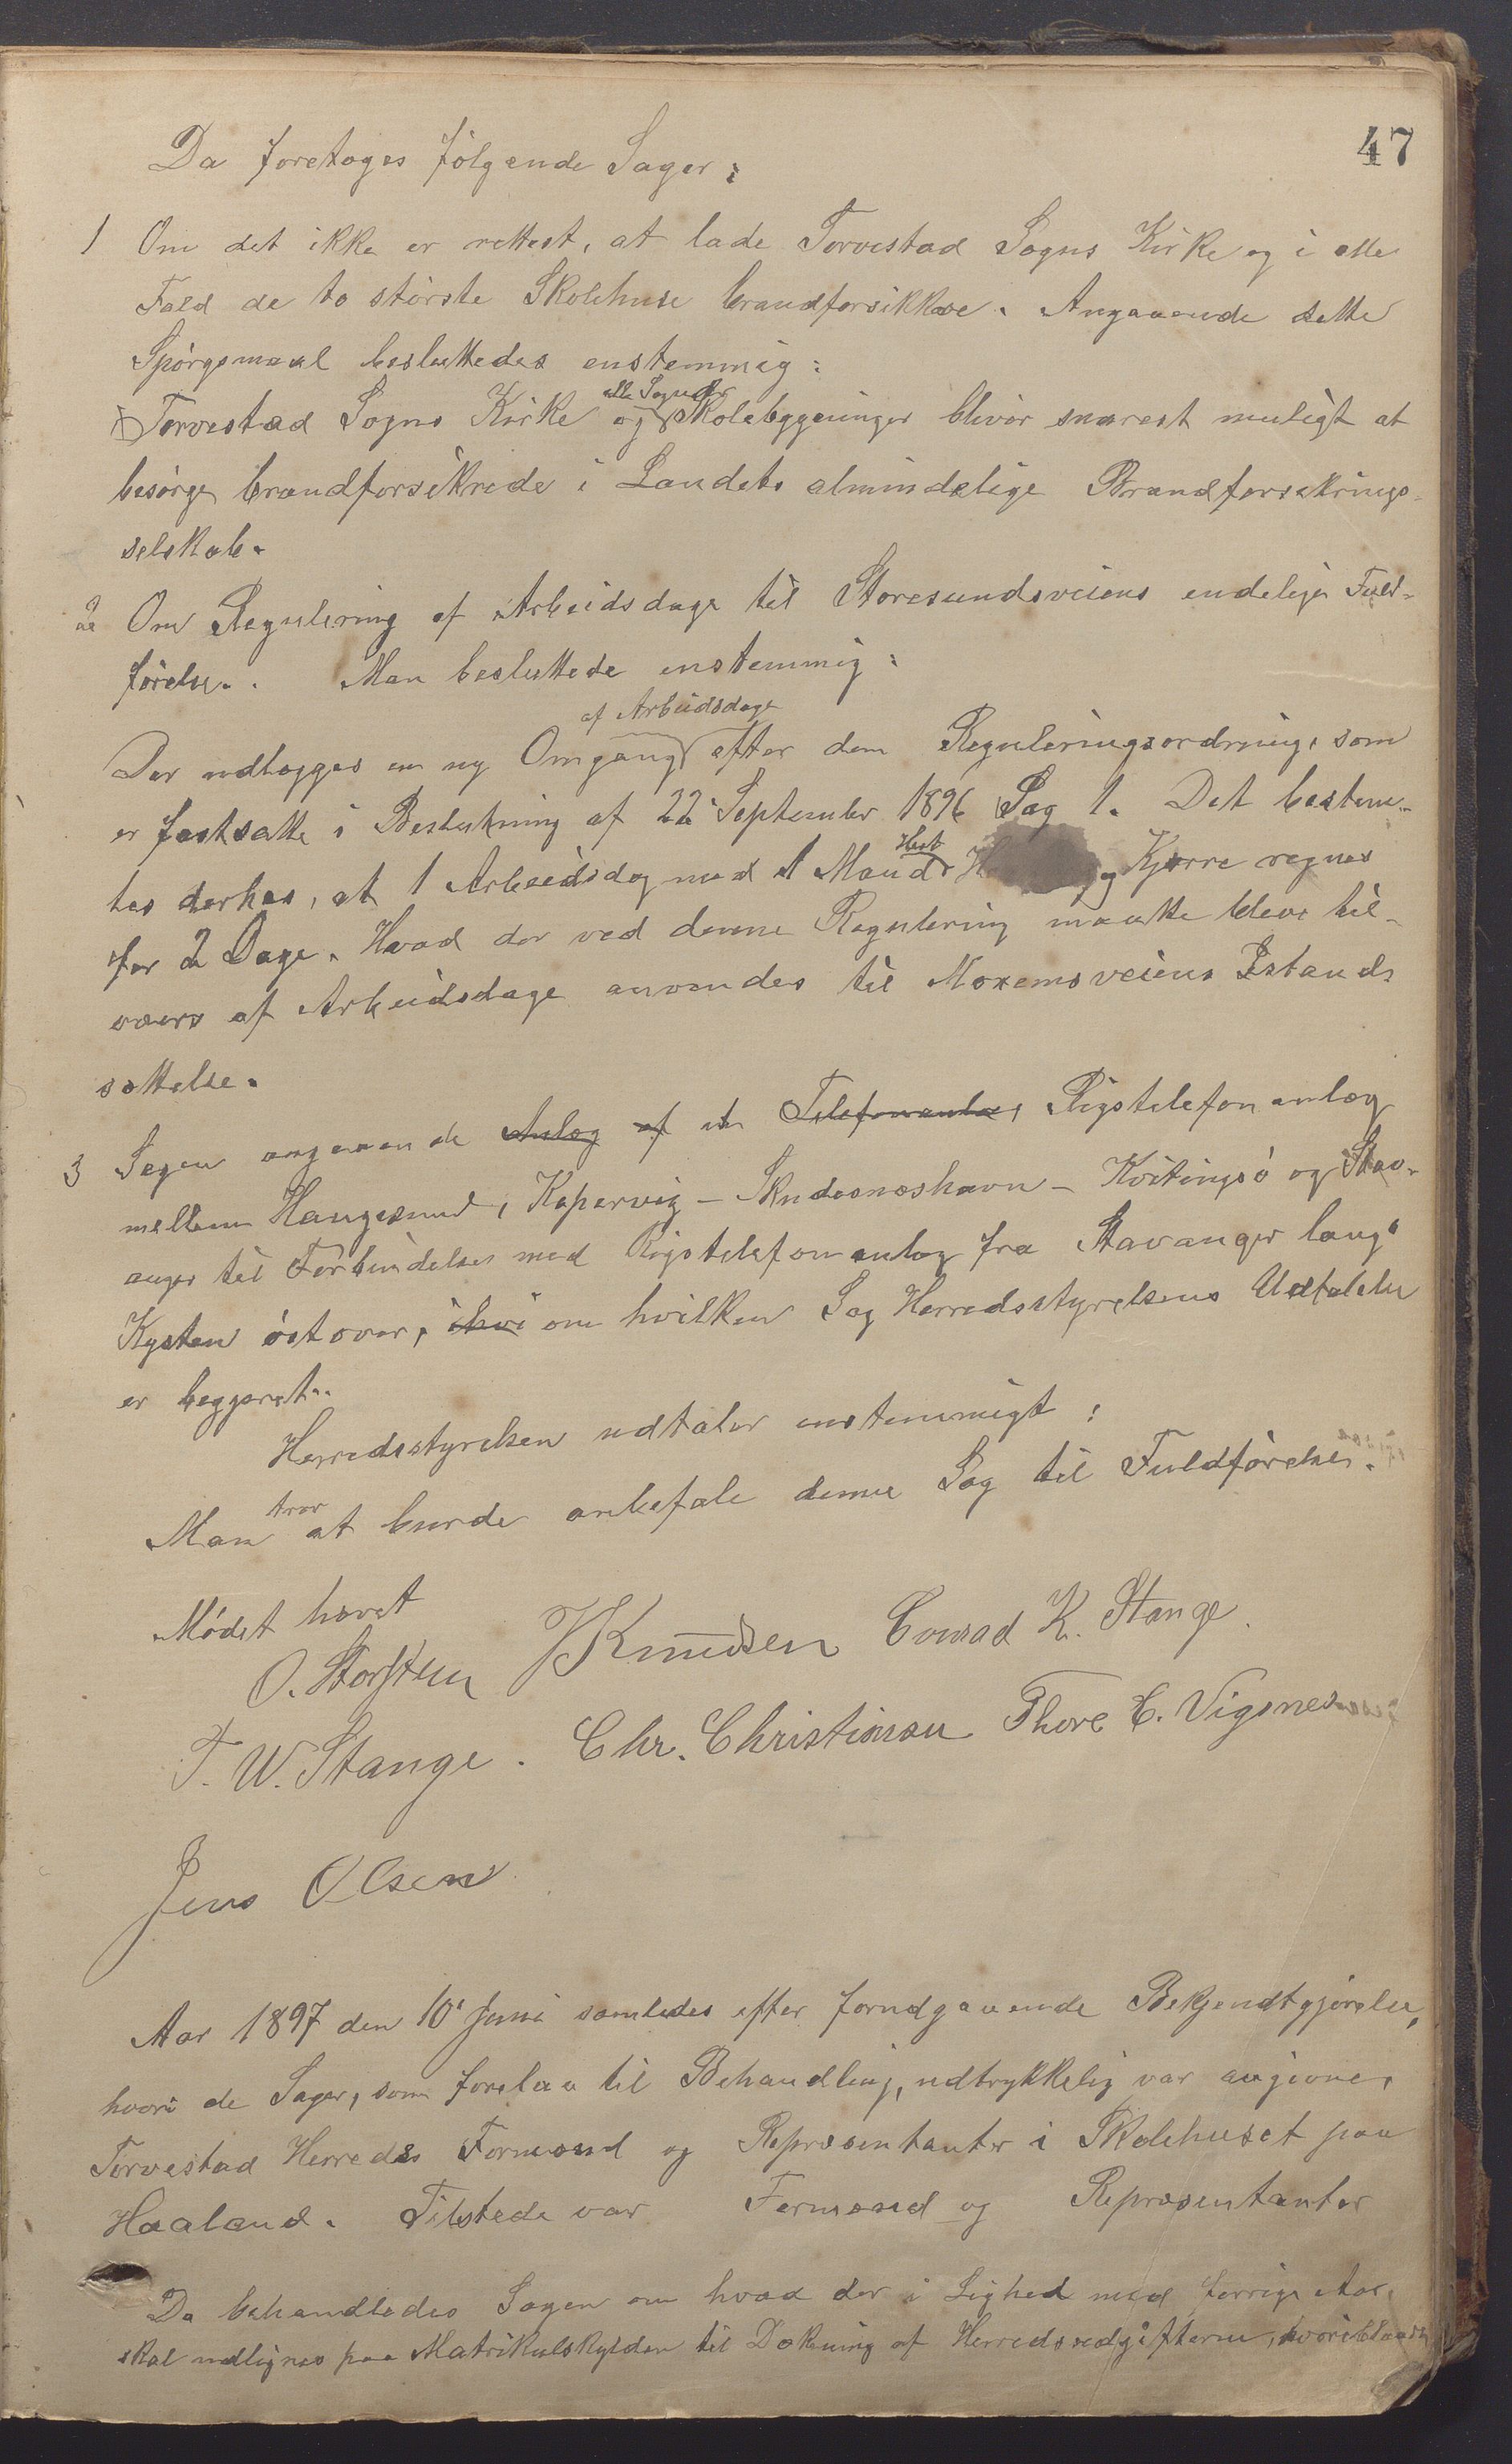 47
Da foretoges følgende Sager:
1 Om det ikke er rettest, at lade Torvestad Sogns Kirke og i alle
Fald de to største Skolehuse brandforsikkre. Angaaende dette
Spørgsmaal besluttedes enstemmig:
alle Sognets
Torvestad Sogns Kirke og Skolebygninger bliver snarest muligt at
besørge brandforsikrede i Landets almindelige Brandforsikrings-
selskab.
2 Om Regulering af Arbeidsdage til Storesundsveiens endelige Fuld-
førelse. Man besluttede enstemmig:
af Arbeidsdage
Der udlægges en ny Omgang efter den Reguleringsordning, som
er fastsatte i Beslutning af 22 September 1896 Sag 1. Det bestem-
Hest
tes derhos, at 1 Arbeidsdag med 1 Mand og Kjærre regnes
for 2 Dage. Hvad der ved denne Regulering maatte bleve til-
overs af Arbeidsdage anvendes til Noremsveiens Istand-
sættelse.
3 Sagen angaaende Anlæg af et Telefonanlæg, Rigstelefonanlæg
mellem Haugesund, Kopervig - Skudesneshavn - Kvitingsø og Stav-
anger til Forbindelse med Rigstelefonanlæg fra Stavanger langs
Kysten østover, i hvi om hvilken Sag Herredsstyrelsens Udtalelse
er begjæret.
Herredsstyrelsen udtaler enstemmigt:
tror
Man at burde anbefale denne Sag til Fuldførelse.
Mødet hævet
O. Storsteen JKnudsen Conrad K. Stange.
T. W. Stange. Chr. Christiansen Thore C. Vigsnes
Jens Olsen
Aar 1897 den 10' Juni samledes efter forudgaaende Bekjendtgjørelse,
hvori de Sager, som forelaa til Behandling, udtrykkelig var angivne,
Torvestad Herreds Formænd og Repræsentanter i Skolehuset paa
Haaland. Tilstede var Formænd og Repræsentanter
Da behandledes Sagen om hvad der i Lighed med forrige Aar
skal udlignes paa Matrikulskylden til Dækning af Herredsudgifterne, hvoriblandt